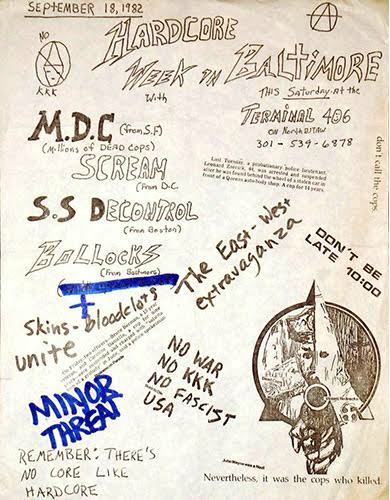 SEPTEMBER 18, 1982
HARDCORE
WEEK IN BALTIMORE
NO
KKK
With
THIS Saturday At the
TERMINAL 406
ON North EUTAW
301-539-6878
M.D.C (from S.F)
(Millions of DEAD COPS)
SCREAM
(From D.C.
S.S DECONTROL
(From Boston)
BOLLOCKS
(From Baltimore)
Last Tuesday, a probationary police lieutenant,
Leonard Zorcick, 44, was arrested and suspended
after he was found behind the wheel of a stolen car in
front of a Queens auto body shop. A cop for 14 years,
don't call the cops
The East-West
extravaganza
DON'T BE
LATE 10:00
+
Skins - bloodclots
unite
On Friday, two officers,
MINOR
THREAT
NO WAR
NO KKK
NO FASCIST
USA
REMEMBER: THERE'S
NO CORE LIKE
HARDCORE
John Wayne was a Nazi!
Nevertheless, it was the cops who killed.